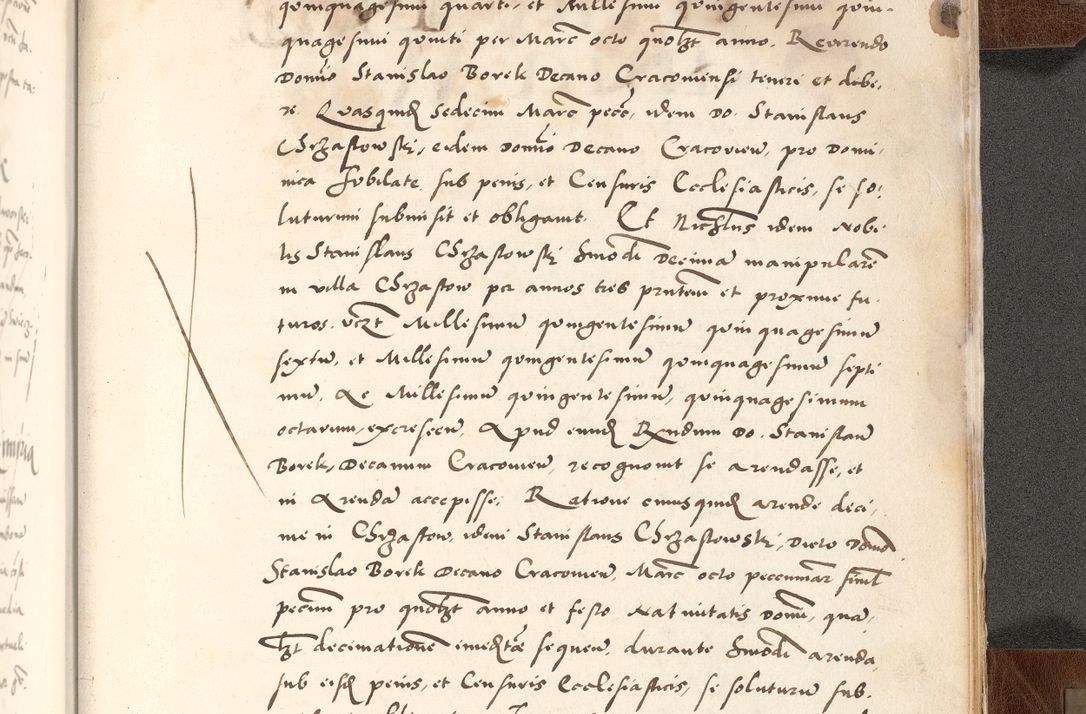 quinquagesimi quarti, et Millesimi quingentesimi quin-
quagesimi quinti per Marc octo quolzt anno. Reverendo
Domino Stanislao Borek Decano Cracoviensi tenere et debe-
re. Quasquid sedecim Marc pecc, idem Do. Stanislaus
Chrzastowski, eidem Domino Decano Cracovien, pro Domi-
nica Jubilate sub penis, et Censuris Ecclesiasticis, se so-
luturum submisit et obligavit. Et Nichlus idem Nobi-
lis Stanislaus Chrzastowski huiusmodi Decimam manipularem
in villa Chrzastow per annos tres presentem et proxime fu-
turos, vczt Millesimum quingentesimum quinquagesimum
sextum, et Millesimum quingentesimum quinquagesimum septi
mum, Ac Millesimum quingentesimum, quinquagesimum
octavum, excrescen, Apud eundem Rndum Do. Stanislaum
Borek, Decanum Cracovien, recognovit se arendasse, et
in Arendam accepisse, Ratione cuiusquid arende deci-
me in Chrzastow, idem Stanislaus Chrzastowski, Dicto Domino
Stanislao Borek Decano Cracovien, Marc octo peccuniar simil
pecum pro quolzt anno et festo Nativitatis Domini, quam
lzt decimationem immediate sequen, durante huiusmodi arenda,
sub eisdem penis, et Censuris Ecclesiasticis, se soluturum sub-